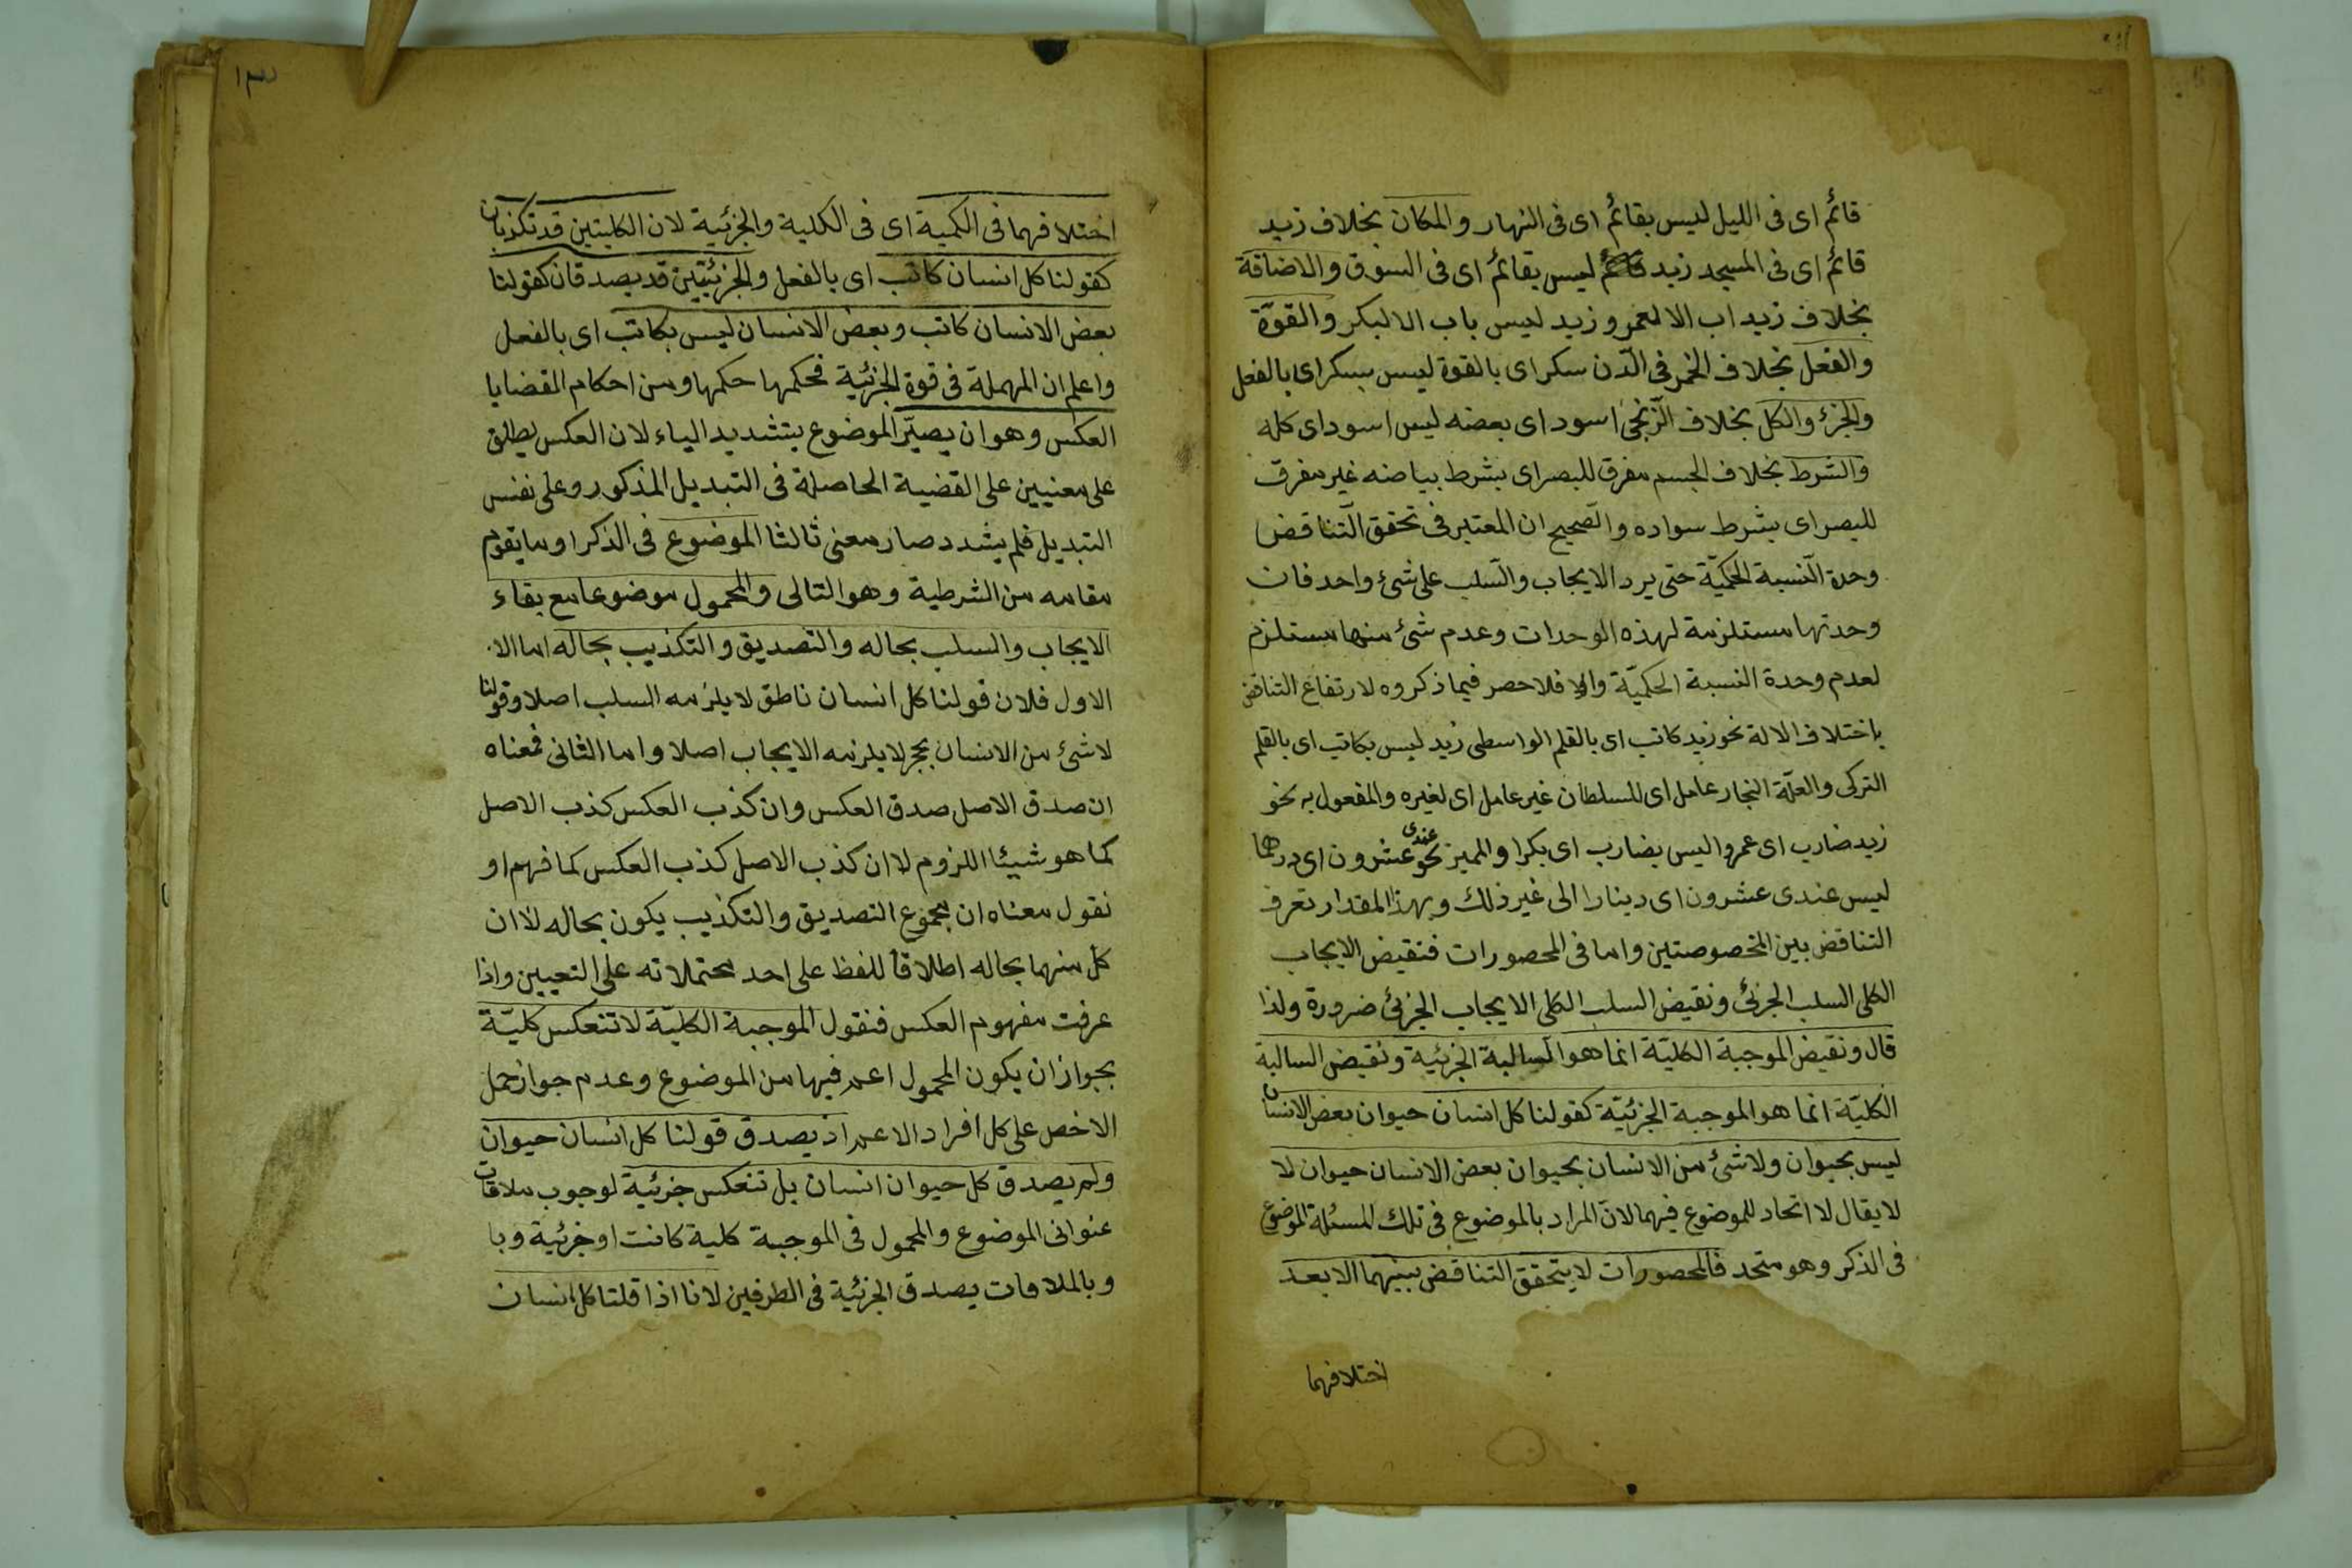 قائم اى فى الليل ليس بقائم اى فى النهار والمكان بخلاف زيد
قائم اى فى المسجد زيد ليس بقائم اى فى السوق والاضافة
بخلاف زيد اب الا لعمرو زيد ليس باب الا لبكر والقوّة
والفعل بخلاف الخمر فى الدّن سكر اى بالقوة ليس بسكر اى بالفعل
والجزء والكل بخلاف الزّنجى اسود اى بعضه ليس اسود اى كله
والشرط بخلاف الجسم مفرق للبصر اى بشرط بياضه غير مفرق
للبصر اى بشرط سواده والصحيح ان المعتبر فى تحقق التّناقض
وحدة النّسبة الحكميّة حتى يرد الايجاب والسّلب على شئ واحد فان
وحدتها مستلزمة لهذه الوحدات وعدم شئ منها مستلزم
لعدم وحدة النسبة الحكميّة والا فلا حصر فيما ذكروه لارتفاع التناقض
باختلاف الالة نحو زيد كاتب اى بالقلم الواسطى زيد ليس بكاتب اى بالقلم
التركى والعلّة النجار عامل اى للسلطان غير عامل اى لغيره والمفعول به نحو
زيد ضارب اى عمروا ليس بضارب اى بكرا والمميز نحو عندى عشرون اى درهما
ليس عندى عشرون اى دينارا الى غير ذلك وبهذا المقدار تعرف
التناقض بين المخصوصتين واما فى المحصورات فنقيض الايجاب
الكلى السلب الجزئى ونقيض السلب الكلى الايجاب الجزئى ضرورة ولذا
قال ونقيض الموجبة الكليّة انما هو السالبة الجزئية ونقيض السالبة
الكليّة انما هو الموجبة الجزئيّة كقولنا كل انسان حيوان بعض الانسان
ليس بحيوان ولا شئ من الانسان بحيوان بعض الانسان حيوان لا
لا يقال لا اتحاد للموضوع فيهما لانّ المراد بالموضوع فى تلك المسئلة الموضوع
فى الذكر وهو متحد فالمحصورات لا يتحقق التناقض بينهما الا بعد
اختلافهما
١٣
اختلافهما فى الكمية اى فى الكلية والجزئية لان الكليتين قد تكذبان
كقولنا كل انسان كاتب اى بالفعل والجزئيتين قد يصدقان كقولنا
بعض الانسان كاتب وبعض الانسان ليس بكاتب اى بالفعل
واعلم ان المهملة فى قوة الجزئية فحكمها حكمها ومن احكام القضايا
العكس وهو ان يصيّر الموضوع بتشديد الياء لان العكس يطلق
على معنيين على القضية الحاصلة فى التبديل المذكور وعلى نفس
التبديل فلم يشدد صار معنى ثالثا الموضوع فى الذكر او ما يقوم
مقامه من الشرطية وهو التالى والمحمول موضوعا مع بقاء
الايجاب والسلب بحاله والتصديق والتكذيب بحاله اما الا
الاول فلان قولنا كل انسان ناطق لا يلزمه السلب اصلا وقولنا
لا شئ من الانسان بحجر لا يلزمه الايجاب اصلا واما الثانى فمعناه
ان صدق الاصل صدق العكس وان كذب العكس كذب الاصل
كما هو شيئا اللزوم لا ان كذب الاصل كذب العكس كما فهم او
نقول معناه ان مجموع التصديق والتكذيب يكون بحاله لا ان
كل منهما بحاله اطلاقا للفظ على احد محتملاته على التعيين واذا
عرفت مفهوم العكس فنقول الموجبة الكليّة لا تنعكس كليّة
بجواز ان يكون المحمول اعم فيها من الموضوع وعدم جواز حمل
الاخص على كل افراد الاعم اذ يصدق قولنا كل انسان حيوان
ولم يصدق كل حيوان انسان بل تنعكس جزئية لوجوب ملاقات
عنوانى الموضوع والمحمول فى الموجبة كلية كانت او جزئية وبا
وبالملاقات يصدق الجزئية فى الطرفين لانا اذا قلنا كل انسان